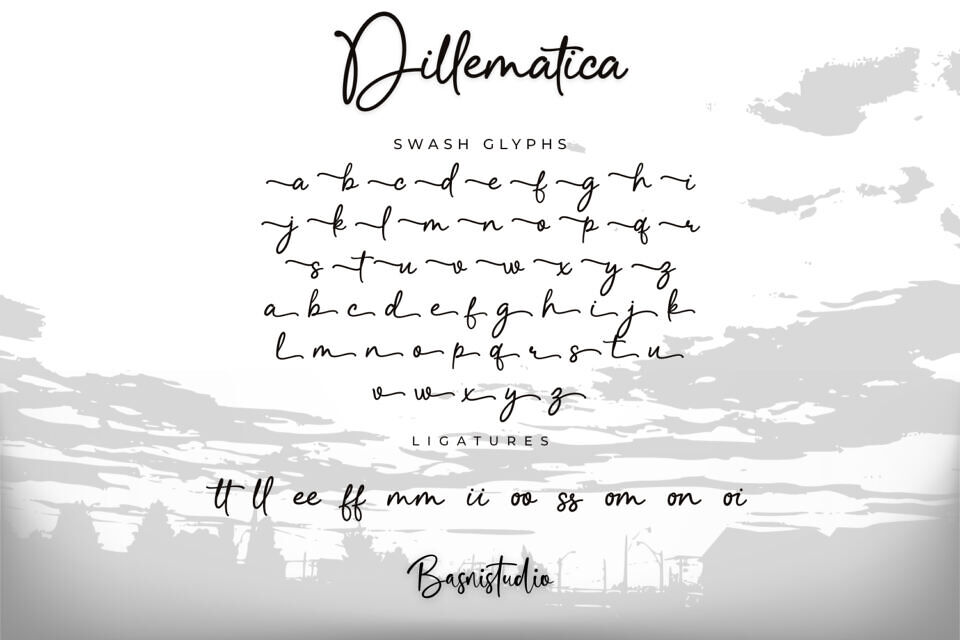 Dillematica
SWASH GLYPHS
a b c d e f g h i
j k l m n o p q r
s t u v w x y z
a b c d e f g h i j k
l m n o p q r s t u
v w x y z
LIGATURES
tt ll ee ff mm ii oo ss om on oi
Basnistudio